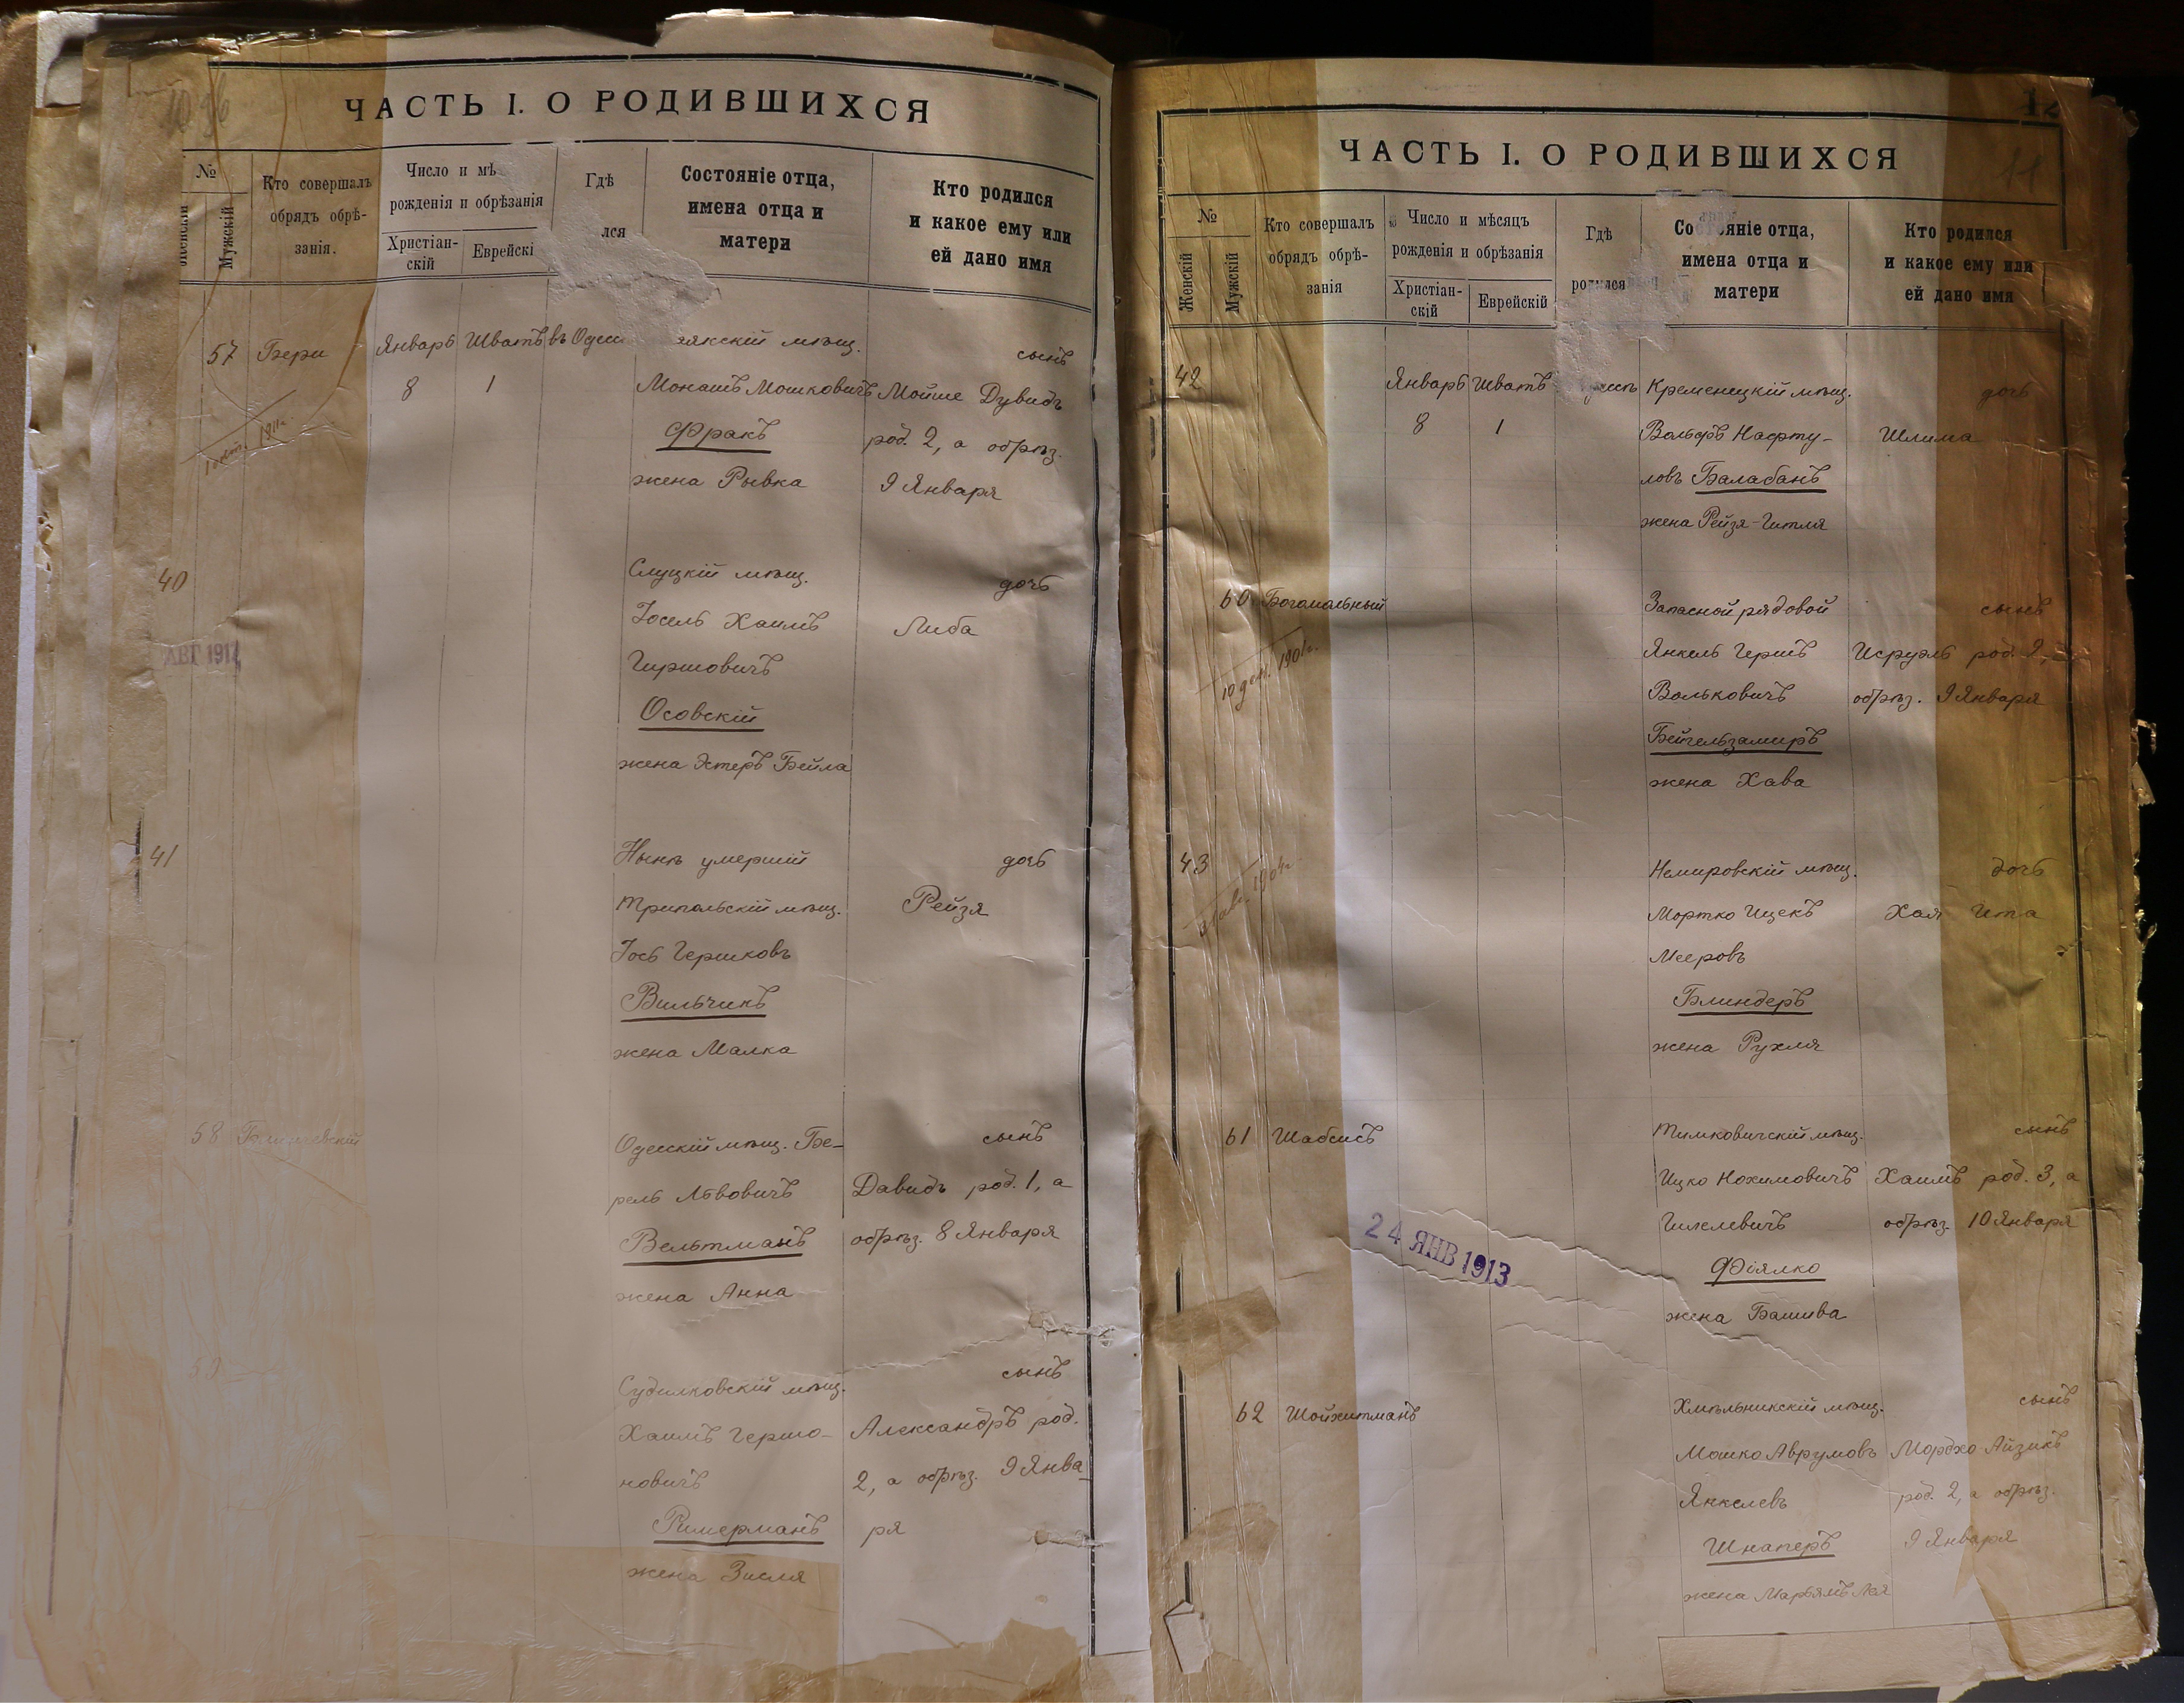 ЧАСТЬ I. О РОДИВШИХСЯ
№
Женскій
Мужскій
Кто совершалъ
обрядъ обрѣ-
занія.
Число и мѣ
рожденія и обрѣзанія
Христіан-
скій
Еврейскі
Гдѣ
лся
Состояніе отца,
имена отца и
матери
Кто родился
и какое ему или
ей дано имя
57 Бери Январь Шватъ въ Одес якскій мѣщ. сынъ
8 1 Монашъ Мошковичъ Мойше Дувидъ
Фракъ род. 2, а обрѣз.
жена Рывка 9 Января
1911г.
40 Слуцкій мѣщ. дочь
Іосель Хаимъ Либа
АВГ 1914
Гиршовичъ
Осовскій
жена Эстеръ Бейла
41 Нынѣ умершій дочь
Трипольскій мѣщ. Рейзя
Іось Гершковъ
Вильчикъ
жена Малка
58 Одесскій мѣщ. Бе- сынъ
рель Львовичъ Давидъ род. 1, а
Вельтманъ обрѣз. 8 Января
жена Анна
59 Судилковскій мѣщ. сынъ
Хаимъ Гершо- Александръ род.
новичъ 2, а обрѣз. 9 Янва-
Ришерманъ ря
жена Зисля
12
11
ЧАСТЬ I. О РОДИВШИХСЯ
№
Женскій
Мужскій
Кто совершалъ
обрядъ обрѣ-
занія
Число и мѣсяцъ
рожденія и обрѣзанія
Христіан-
скій
Еврейскій
Гдѣ
родился
Состояніе отца,
имена отца и
матери
Кто родился
и какое ему или
ей дано имя
42 Январь Шватъ Кременецкій мѣщ. дочь
8 1 Вольфъ Нафту- Шлима
ловъ Балабанъ
жена Рейзя-Гитля
60 Богомольный Запасной рядовой сынъ
Янкель Гершъ Исруэль род. 2,
10 дек. 1901г.
Вольковичъ обрѣз. 9 Января
Бейгельзамиръ
жена Хава
43 Немировскій мѣщ. дочь
1904г.
Мортко Ицекъ Хая Ита
Мееровъ
Блиндеръ
жена Рухля
61 Шабсисъ Тимковичскій мѣщ. сынъ
Ицко Нохимовичъ Хаимъ род. 3, а
Гилелевичъ обрѣз. 10 Января
24 ЯНВ 1913
Фіялко
жена Башива
62 Шойхитманъ Хмѣльникскій мѣщ. сынъ
Мошко Аврумовъ Мордхо-Айзикъ
Янкелевъ род. 2, а обрѣз.
Шнаперъ 9 Января
жена Марьямъ Лея